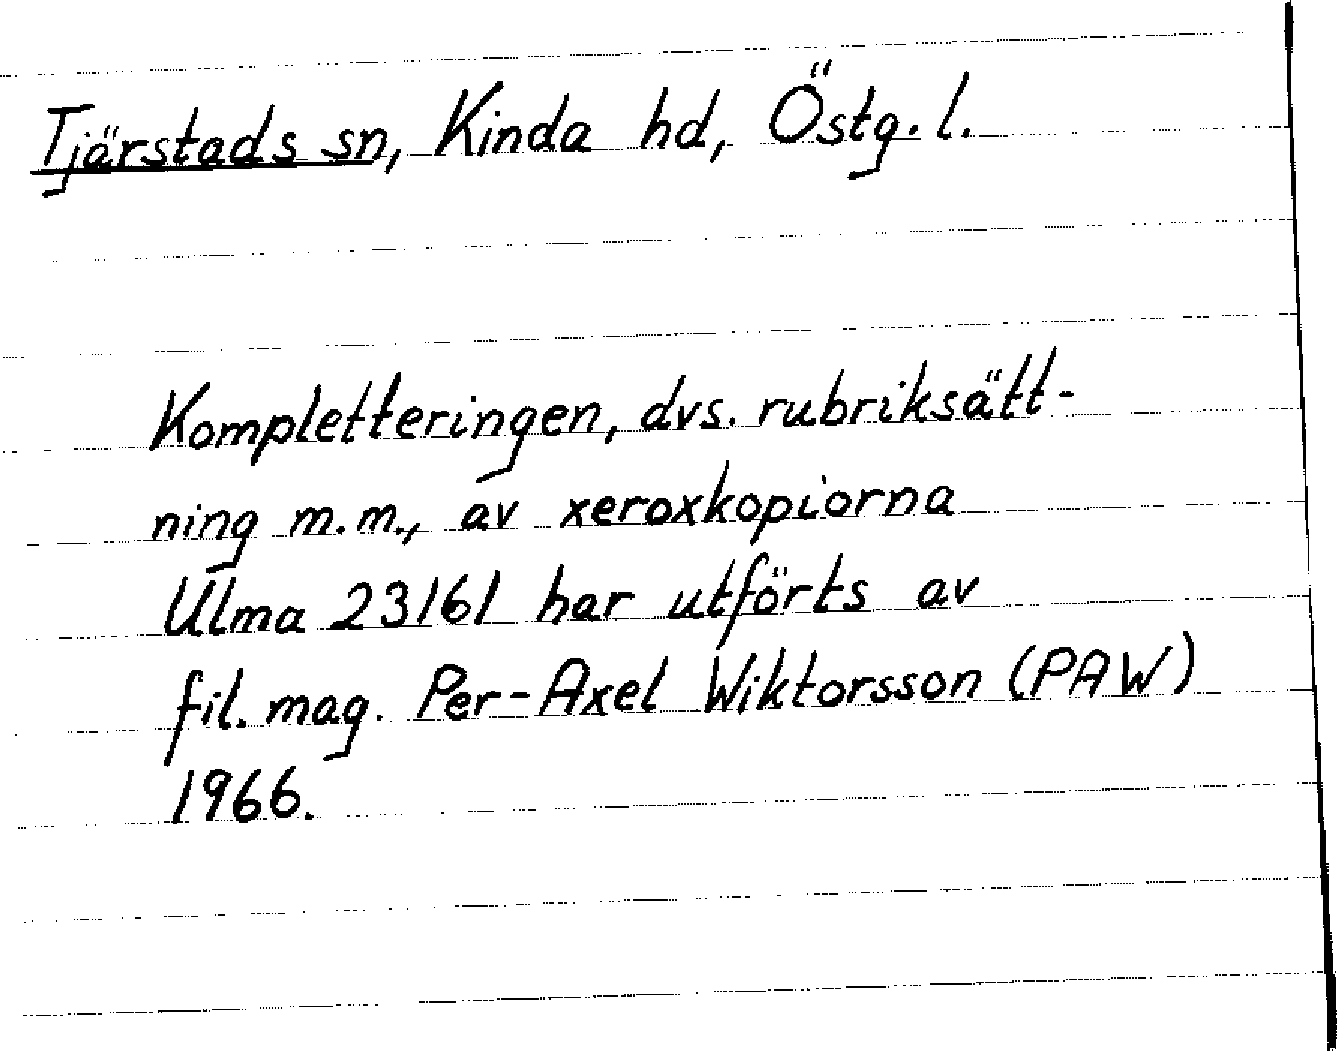 Tjärstads sn, Kinda hd, Östg. l.
Kompletteringen, dvs. rubriksätt-
ning m.m., av xeroxkopiorna
Ulma 23161 har utförts av
fil. mag. Per-Axel Wiktorsson (PAW)
1966.